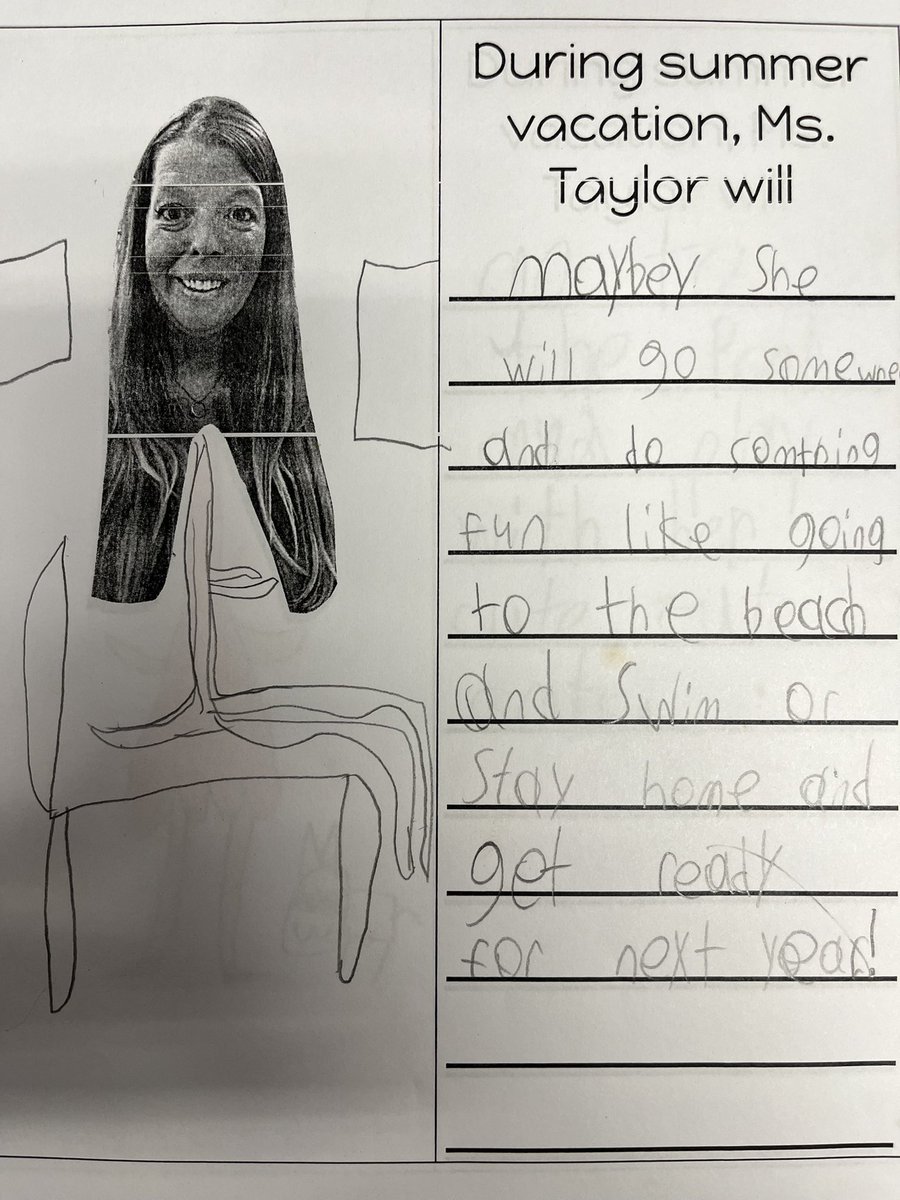 During summer
vacation, Ms.
Taylor will
maybey she
will go somewhe
and do somthing
fun like going
to the beach
and swim or
Stay home and
get ready
for next year!